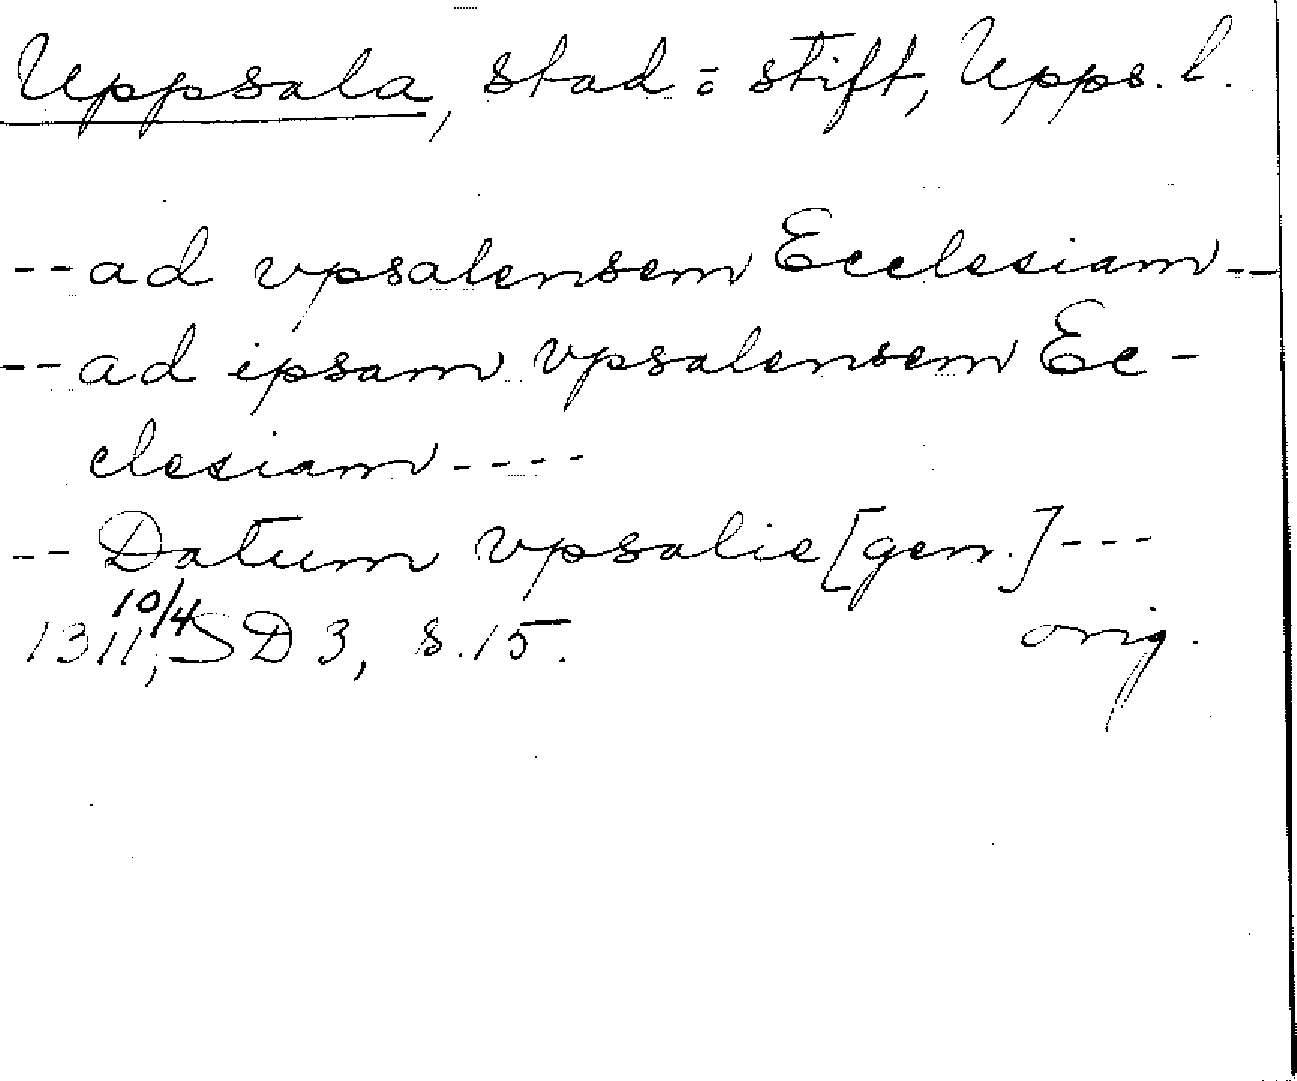 Uppsala, stad = stift, Upps. l.
-- ad vpsalensem Ecclesiam --
-- ad ipsam vpsalensem Ec-
clesiam ----
-- Datum vpsalie [gen.] ---
10/4
1311, SD 3, s. 15. orig.